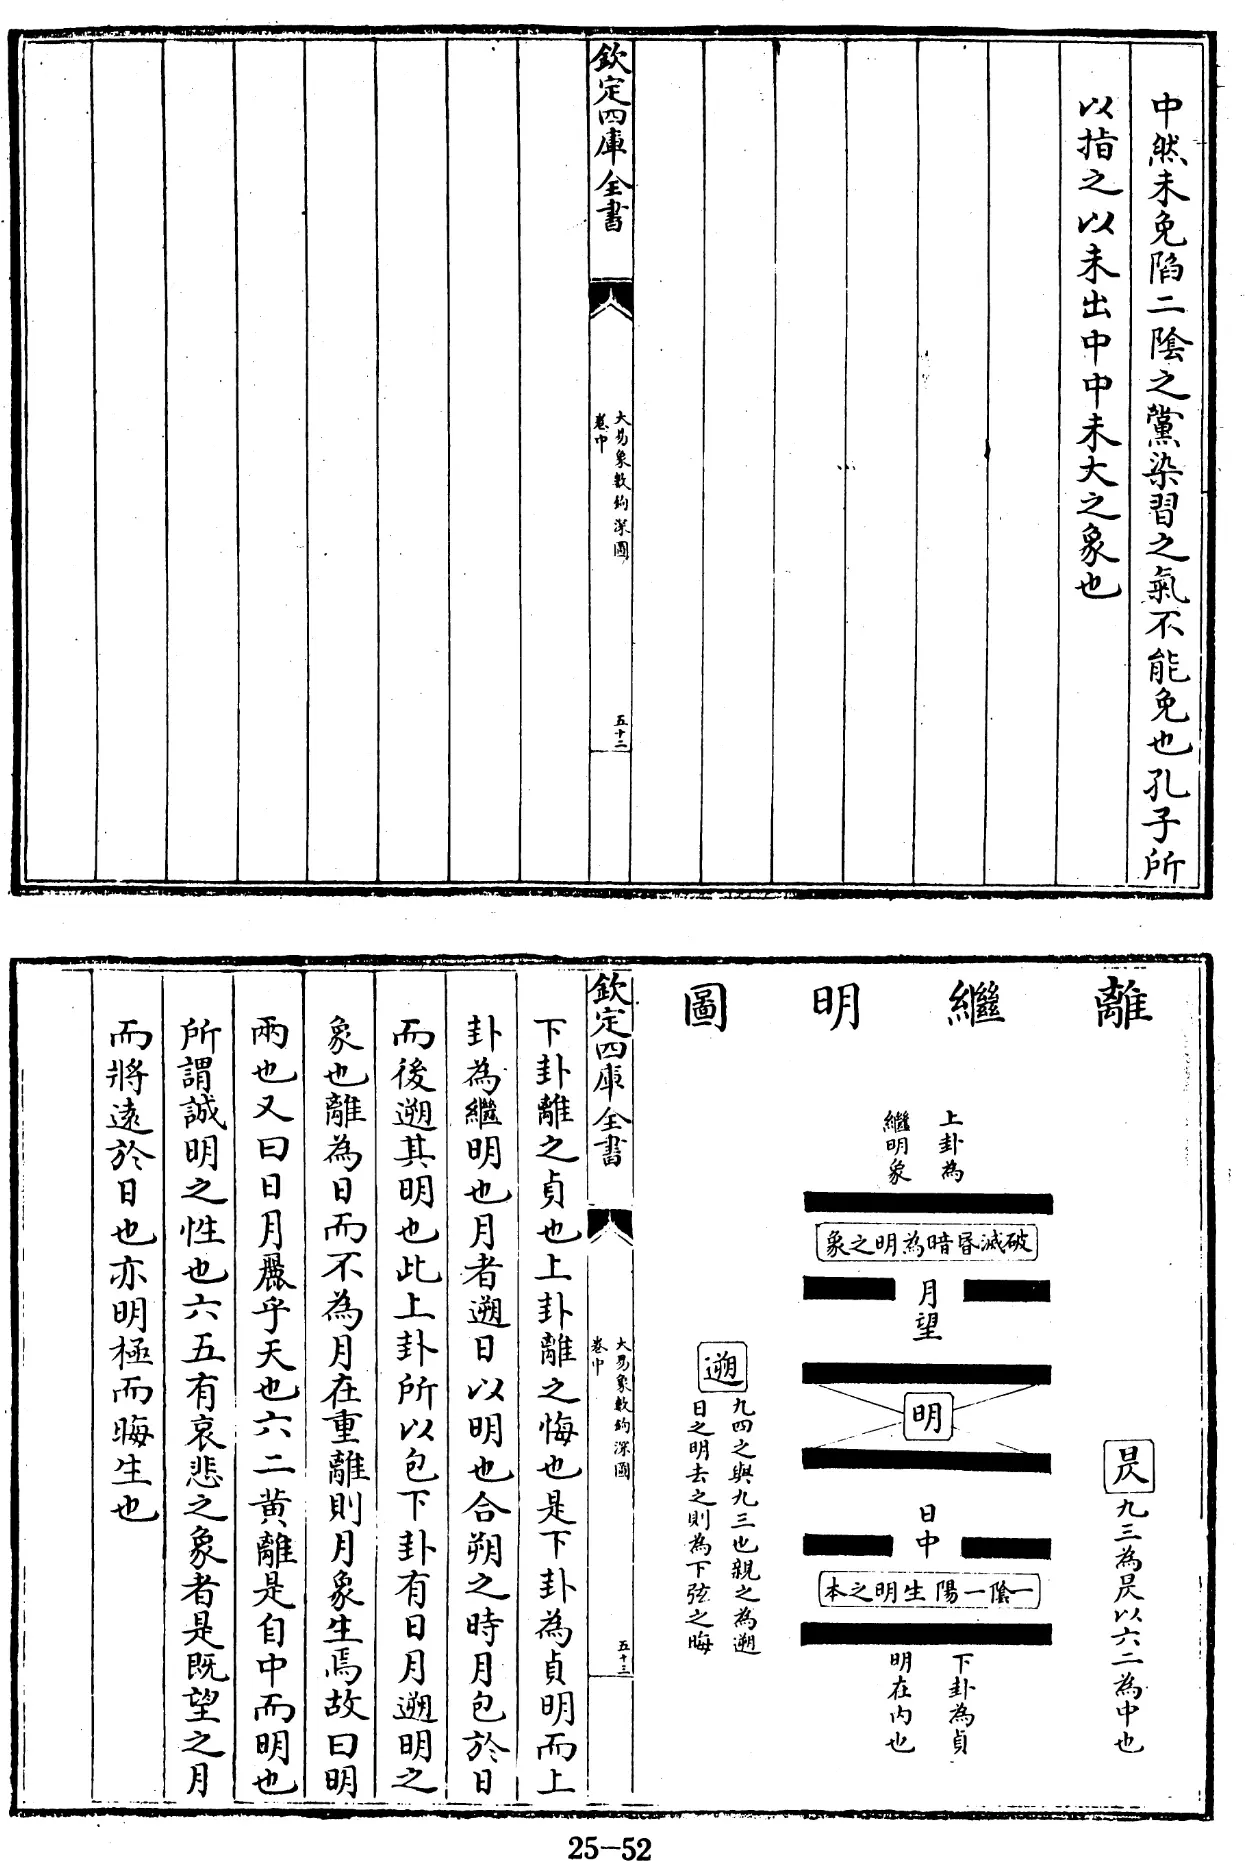 中然未免陷二陰之黨染習之氣不能免也孔子所
以指之以未出中中未大之象也
欽定四庫全書
大易象數鉤深圖
卷中
五十二
離繼明圖
昃
九三為昃以六二為中也
上卦為
繼明象
破滅昏暗為明之象
月望
明
日中
一陰一陽生明之本
下卦為貞
明在內也
遡
九四之與九三也親之為遡
日之明去之則為下弦之晦
欽定四庫全書
大易象數鉤深圖
卷中
五十三
下卦離之貞也上卦離之悔也是下卦為貞明而上
卦為繼明也月者遡日以明也合朔之時月包於日
而後遡其明也此上卦所以包下卦有日月遡明之
象也離為日而不為月在重離則月象生焉故曰明
兩也又曰日月麗乎天也六二黃離是自中而明也
所謂誠明之性也六五有哀悲之象者是既望之月
而將遠於日也亦明極而晦生也
25-52